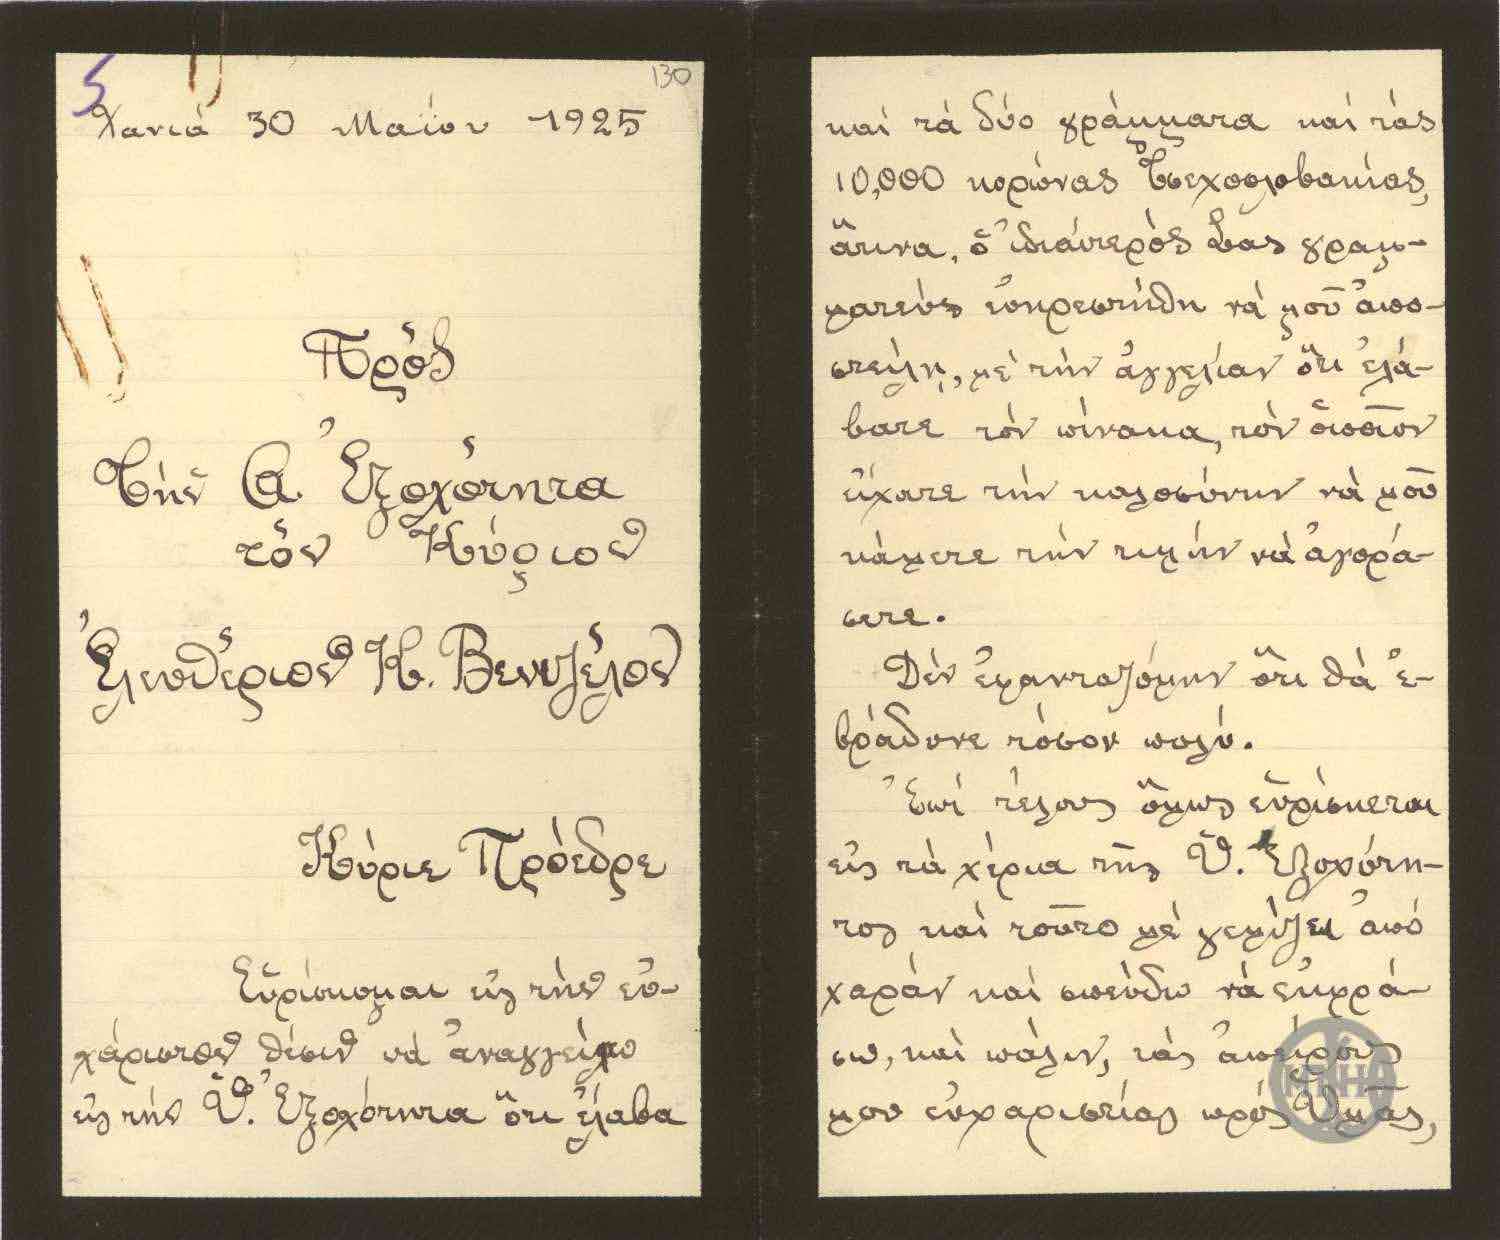 5
130
Χανιά 30 Μαΐου 1925
Πρὸς
Τὴν Α. Ἐξοχότητα
τὸν Κύριον
Ἐλευθέριον Κ. Βενιζέλον
Κύριε Πρόεδρε
Εὑρίσκομαι εἰς τὴν εὐ-
χάριστον θέσιν νὰ ἀναγγείλω
εἰς τὴν Ὑ. Ἐξοχότητα ὅτι ἔλαβα
καὶ τὰ δύο γράμματα καὶ τὰς
10,000 κορώνας Τσεχοσλοβακίας,
ἅτινα, ὁ ἰδιαίτερός Σας γραμ-
ματεὺς εὐηρεστήθη νὰ μοῦ ἀπο-
στείλῃ, μὲ τὴν ἀγγελίαν ὅτι ἐλά-
βατε τὸν πίνακα, τὸν ὁποῖον
εἴχατε τὴν καλοσύνην νὰ μοῦ
κάμετε τὴν τιμὴν νὰ ἀγορά-
σετε.
Δὲν ἐφανταζόμην ὅτι θὰ ἐ-
βράδυνε τόσον πολύ.
Ἐπὶ τέλους ὅμως εὑρίσκεται
εἰς τὰ χέρια τῆς Ὑ. Ἐξοχότη-
τος καὶ τοῦτο μὲ γεμίζει ἀπὸ
χαρὰν καὶ σπεύδω νὰ ἐκφρά-
σω, καὶ πάλιν, τὰς ἀπείρους
μου εὐχαριστίας πρὸς Ὑμᾶς,